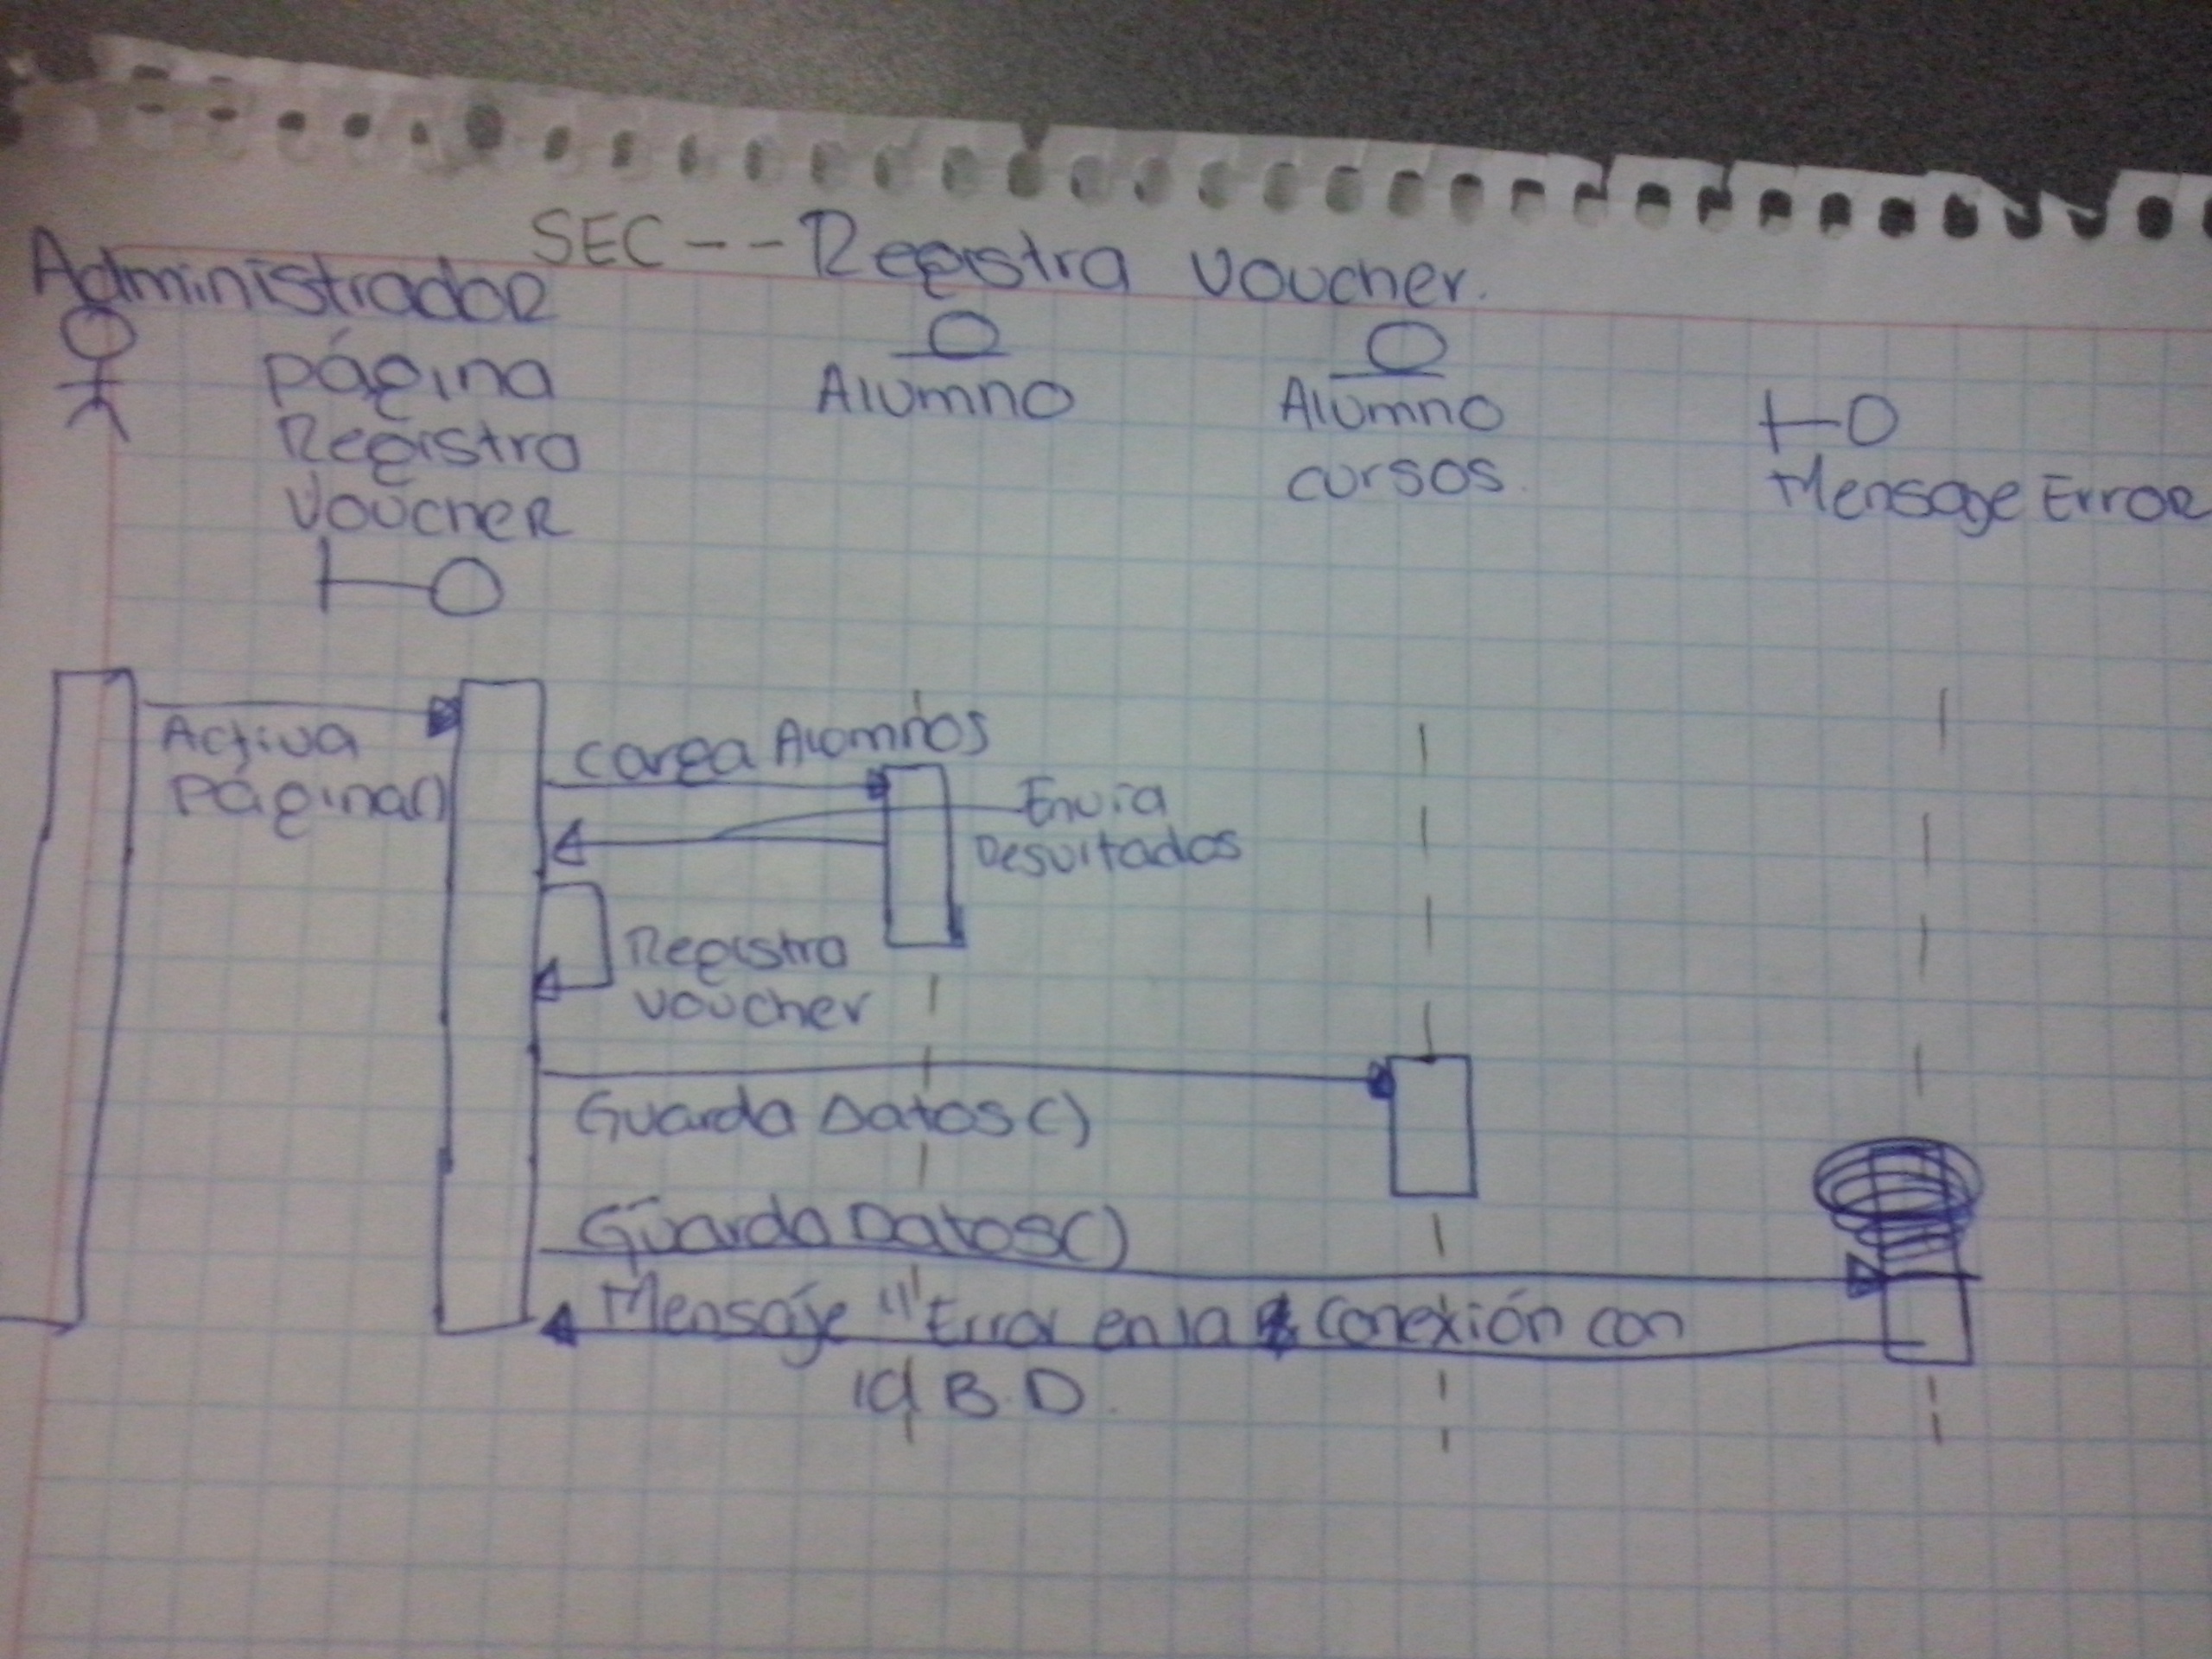 SEC -- Registra Voucher.
Administrador
página
Registro
Voucher
Alumno
Alumno
cursos.
Mensage Error
Activa
Página()
carga Alumnos
Envia
Resultados
Registra
voucher
Guarda Datos()
Guarda Datos()
Mensaje "Error en la conexión con
la B.D.